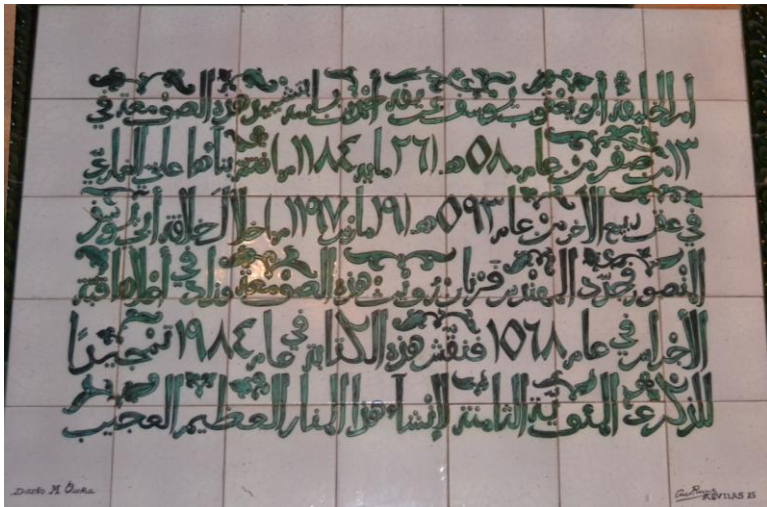 أمر الخليفة أبو يعقوب يوسف بن أحمد بن باسه بتشييد هذه الصومعة في
١٣ من صفر من عام ٥٨٠ هـ (٢٦ مايه ١١٨٤ م) فتم بناءها علي الغماري
في عقب ربيع الآخر من عام ٥٩٣ هـ (١٩ مارس ١١٩٧ م) خلال خلافة أبي يوسف
المنصور فجدد المهندس فرنان رويث هذه الصومعة وزاد في أعلاها قبة
الأجراس في عام ١٥٦٨ فنقش هذه الكتابة في عام ١٩٨٤ تمجيدًا
للذكرى المئوية الثامنة لإنشاء هذا المنار العظيم العجيب